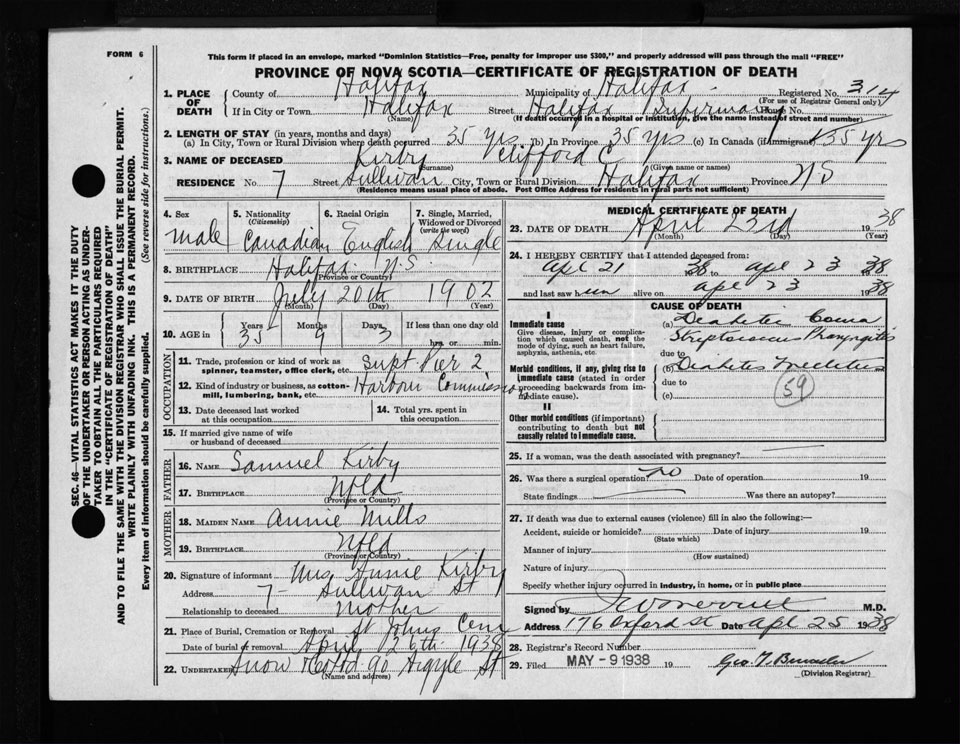 FORM 6
This form if placed in an envelope, marked "Dominion Statistics—Free, penalty for improper use $300," and properly addressed will pass through the mail "FREE"
PROVINCE OF NOVA SCOTIA—CERTIFICATE OF REGISTRATION OF DEATH
SEC. 46—VITAL STATISTICS ACT MAKES IT THE DUTY
OF THE UNDERTAKER OR PERSON ACTING AS UNDER-
TAKER TO OBTAIN ALL THE PARTICULARS REQUIRED
IN THE "CERTIFICATE OF REGISTRATION OF DEATH"
AND TO FILE THE SAME WITH THE DIVISION REGISTRAR WHO SHALL ISSUE THE BURIAL PERMIT.
WRITE PLAINLY WITH UNFADING INK. THIS IS A PERMANENT RECORD.
Every item of information should be carefully supplied. (See reverse side for instructions.)
1. PLACE OF DEATH County of Halifax Municipality of Halifax Registered No. 314
(For use of Registrar General only)
If in City or Town Halifax Street Halifax Infirmary House No.
(Name) (If death occurred in a hospital or institution, give the name instead of street and number)
2. LENGTH OF STAY (in years, months and days)
(a) In City, Town or Rural Division where death occurred 35 yrs (b) In Province 35 yrs (c) In Canada (if immigrant) 35 yrs
3. NAME OF DECEASED Kirby Clifford C
(Surname) (Given name or names)
RESIDENCE No 7 Street Sullivan City, Town or Rural Division Halifax Province N S
(Residence means usual place of abode. Post Office Address for residents in rural parts not sufficient)
4. Sex 5. Nationality (Citizenship) 6. Racial Origin 7. Single, Married, Widowed or Divorced (write the word)
Male Canadian English Single
8. BIRTHPLACE Halifax N.S.
(Province or Country)
9. DATE OF BIRTH July 20th 1902
(Month) (Day) (Year)
10. AGE in Years Months Days If less than one day old
35 9 3 hrs. or min.
OCCUPATION
11. Trade, profession or kind of work as Supt. Pier 2
spinner, teamster, office clerk, etc.
12. Kind of industry or business, as cotton- Harbour Commission
mill, lumbering, bank, etc.
13. Date deceased last worked at this occupation 14. Total yrs. spent in this occupation
15. If married give name of wife
or husband of deceased
FATHER
16. NAME Samuel Kirby
17. BIRTHPLACE Nfld
(Province or Country)
MOTHER
18. MAIDEN NAME Annie Mills
19. BIRTHPLACE Nfld
(Province or Country)
20. Signature of informant Mrs Annie Kirby
Address 7 - Sullivan St
Relationship to deceased Mother
21. Place of Burial, Cremation or Removal St Johns Cem
Date of burial or removal April 26th 1938
22. UNDERTAKER Snow & Co Ltd 90 Argyle St
(Name and address)
MEDICAL CERTIFICATE OF DEATH
23. DATE OF DEATH April 23rd 1938
(Month) (Day) (Year)
24. I HEREBY CERTIFY that I attended deceased from:
Apl 21 1938 to Apl 23 1938
and last saw him alive on Apl 23 1938
CAUSE OF DEATH
I
Immediate cause
Give disease, injury or complica-
tion which caused death, not the
mode of dying, such as heart failure,
asphyxia, asthenia, etc.
(a) Diabetic Coma
Streptococcus Pharyngitis
due to
Morbid conditions, if any, giving rise to
immediate cause (stated in order
proceeding backwards from im-
mediate cause).
(b) Diabetes Mellitus
due to
(c)
59
II
Other morbid conditions (if important)
contributing to death but not
causally related to immediate cause.
25. If a woman, was the death associated with pregnancy?
26. Was there a surgical operation? no Date of operation 19
State findings Was there an autopsy?
27. If death was due to external causes (violence) fill in also the following:—
Accident, suicide or homicide? Date of injury 19
(State which)
Manner of injury
(How sustained)
Nature of injury
Specify whether injury occurred in industry, in home, or in public place
Signed by M.D.
Address 176 Oxford St Date Apl 25 1938
28. Registrar's Record Number
29. Filed MAY - 9 1938 19 Geo. T.
(Division Registrar)